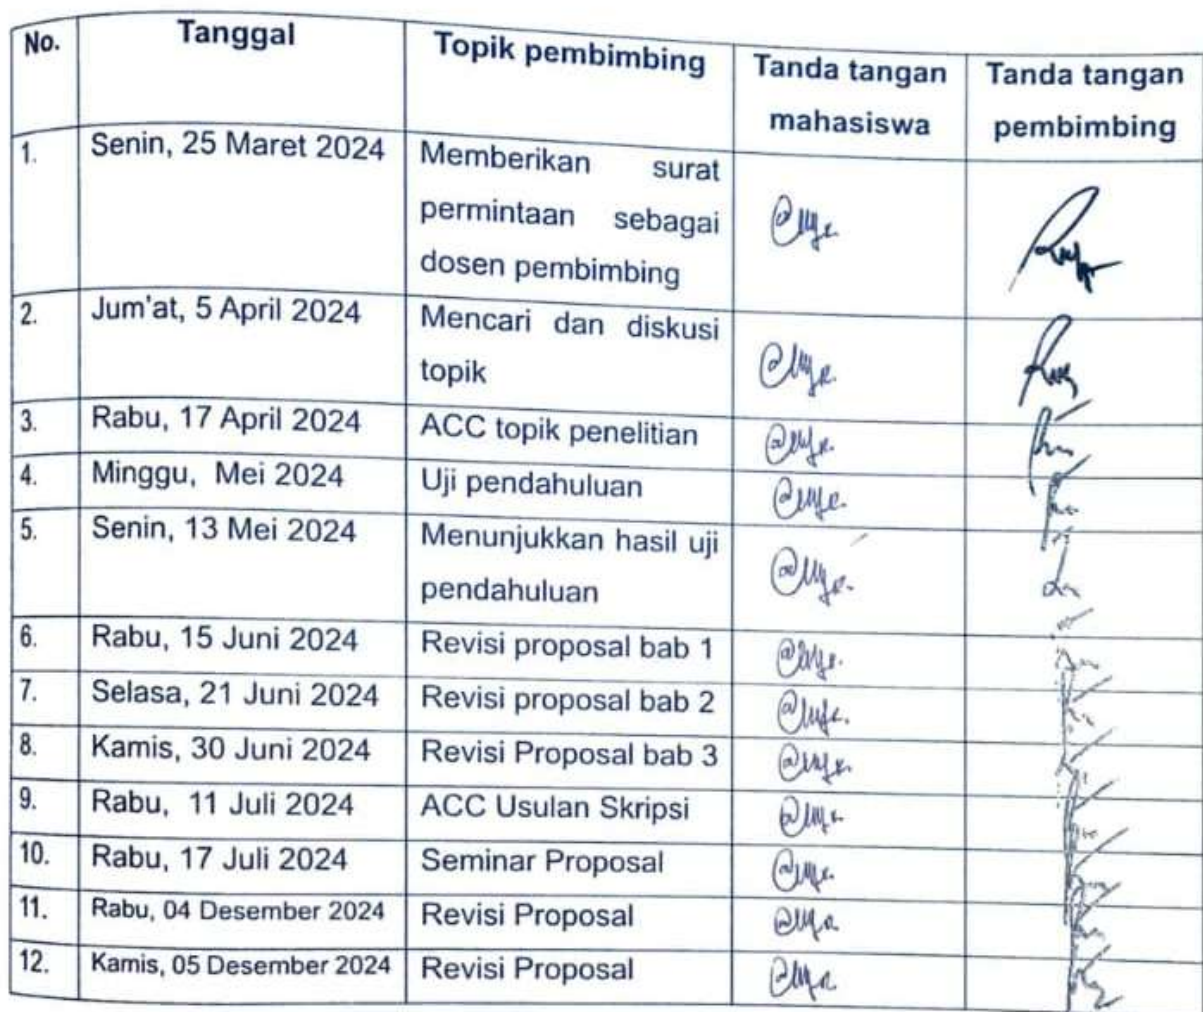 No. Tanggal Topik pembimbing Tanda tangan mahasiswa Tanda tangan pembimbing
1. Senin, 25 Maret 2024 Memberikan surat
permintaan sebagai
dosen pembimbing
2. Jum'at, 5 April 2024 Mencari dan diskusi
topik
3. Rabu, 17 April 2024 ACC topik penelitian
4. Minggu, Mei 2024 Uji pendahuluan
5. Senin, 13 Mei 2024 Menunjukkan hasil uji
pendahuluan
6. Rabu, 15 Juni 2024 Revisi proposal bab 1
7. Selasa, 21 Juni 2024 Revisi proposal bab 2
8. Kamis, 30 Juni 2024 Revisi Proposal bab 3
9. Rabu, 11 Juli 2024 ACC Usulan Skripsi
10. Rabu, 17 Juli 2024 Seminar Proposal
11. Rabu, 04 Desember 2024 Revisi Proposal
12. Kamis, 05 Desember 2024 Revisi Proposal